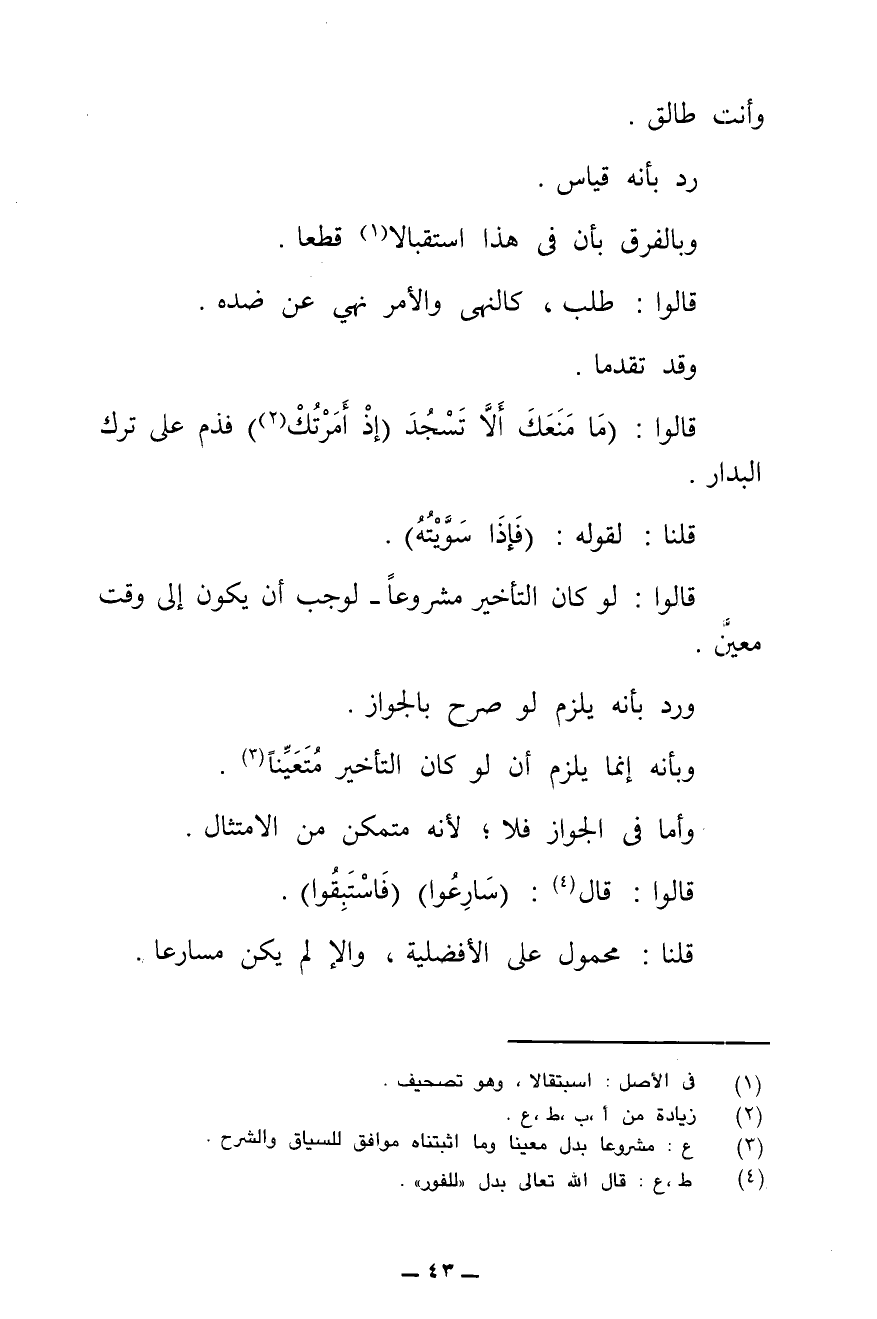 وأنت طالق .
رد بأنه قياس .
وبالفرق بأن فى هذا استقبالا(١) قطعا .
قالوا : طلب ، كالنهى والأمر نهي عن ضده .
وقد تقدما .
قالوا : (مَا مَنَعَكَ أَلَّا تَسْجُدَ (إذْ أَمَرْتُكْ(٢)) فذم على ترك
البدار .
قلنا : لقوله : (فَإذَا سَوَّيْتُهُ) .
قالوا : لو كان التأخير مشروعاً ـ لوجب أن يكون إلى وقت
معينَّ .
ورد بأنه يلزم لو صرح بالجواز .
وبأنه إنما يلزم أن لو كان التأخير مُتَعَيِّناً(٣) .
وأما فى الجواز فلا ؛ لأنه متمكن من الامتثال .
قالوا : قال(٤) : (سَارِعُوا) (فَاسْتَبِقُوا) .
قلنا : محمول على الأفضلية ، والإ لم يكن مسارعا .
(١) فى الأصل : اسبتقالا ، وهو تصحيف .
(٢) زيادة من أ ،ب ،ط ،ع .
(٣) ع : مشروعا بدل معينا وما اثبتناه موافق للسياق والشرح .
(٤) ط ،ع : قال الله تعالى بدل «للفور» .
ـ ٤٣ ـ